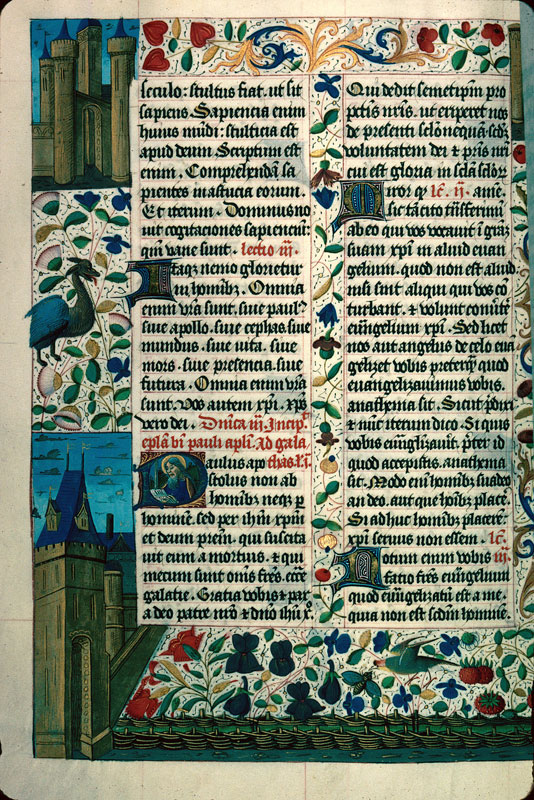 seculo: stultus fiat. ut sit
sapiens Sapiencia enim
huius mūdi: stulticia est
apud deum Scriptum est
enim. Comprehendā sa
pientes in astucia eorum.
Et iterum. Dominus no
uit cogitaciones sapienciū:
qm̄ vane sunt. lectio iij.
Itaqȝ nemo glorietur
in homībȝ. Omnia
enim vr̄a sunt. siue paul⁹
siue apollo. siue cephas. siue
mundus. siue vita. siue
mors. siue presencia. siue
futura. Omnia enim vr̄a
sunt. Vos autem xp̄i. xp̄s
vero dei. Dn̄ica iij. Incip̄
ep̄la bī pauli ap̄li. Ad gala
Paulus apo thas. l. i.
stolus non ab
homībȝ neqȝ p
homine. sed per ihm̄ xpm̄
et deum prēm. qui suscita
uit eum a mortuis. & qui
mecum sunt om̄s frēs. ecc̄e
galatie. Gratia vobis & pax
a deo patre nr̄o & dn̄o ihū x̄.
Qui dedit semetip̄m pro
pctīs nr̄is. ut eriperet nos
de presenti sclō nequā. scd̄ȝ
voluntatem dei & pr̄is nr̄i
cui est gloria in sclā sclōȝ
Miror qȝ lc̄. ij. amē.
sic tā cito trāsferimī
ab eo qui vos vocauit ī grāȝ
suam xp̄i in aliud euan
gelium. quod non est aliud.
nisi sunt aliqui qui vos cō
turbant. & volunt cōuīt'e
euāngelium xp̄i. Sed licet
nos aut angelus de celo eua
gelizet vobis preterqȝ quod
euangelizauimus vobis.
anathema sit. Sicut p̄dixi
& nūc iterum dico. Si quis
vobis euāglizauīt. p̄ter id
quod accepistis. anathema
sit. Modo enī homībȝ suadeo
an deo. aut que hōībȝ placē
Si adhuc homībȝ placerē:
xp̄i seruus non essem. lc̄.
Notum enim vobis iij.
fatio frēs euāngelium
quod euāngelizatū est a me.
quia non est scdm̄ hominē.